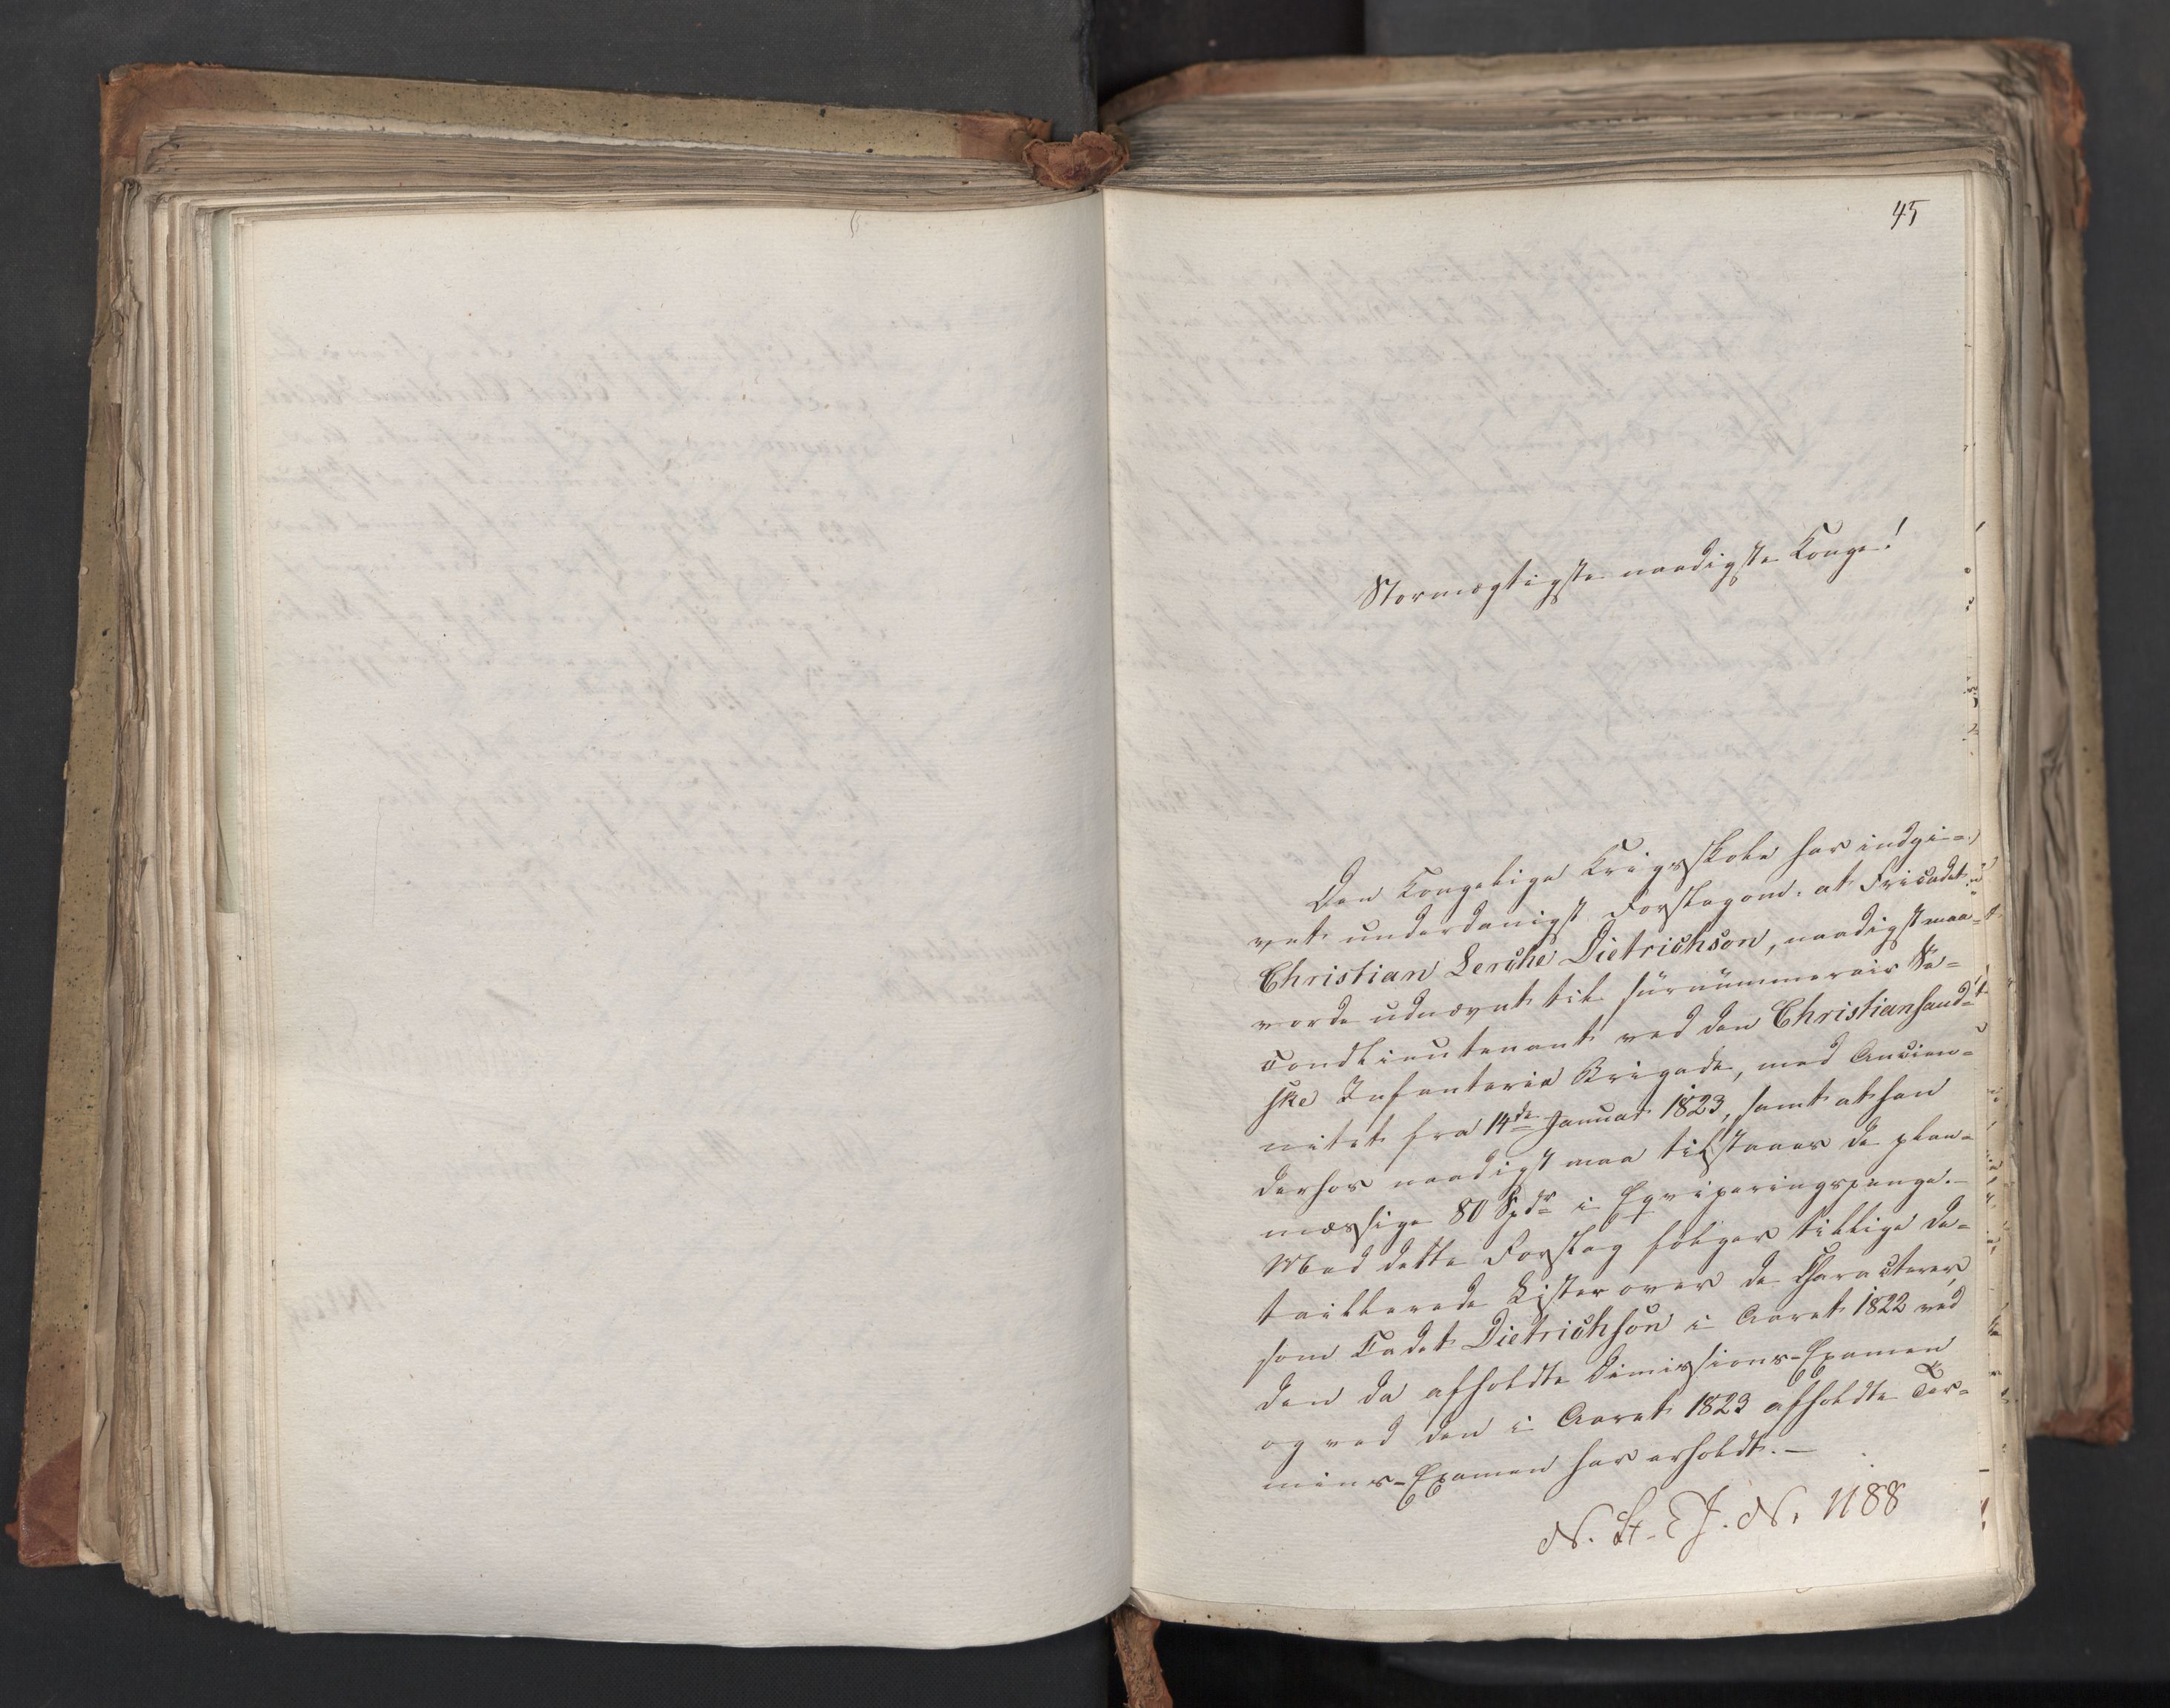 45
Stormægtigste naadigste Konge!
Den Kongelige Krigsskole har indgi-
vet underdanigst Forslag om at Fricadet
Christian Lerche Dietrichson, naadigst maa
vorde udnævnt til surnummerair Se-
condLieutenant ved den Christiansand-
ske Infanterie Brigade, med Ancien-
nitet fra 14de Januar 1823, samt at han
derhos naadigst maa tilstaaes de plan-
mæssige 80 Spdr i Eqviperingspenge.-
Med dette Forslag følger tillige de-
taillerede Lister over de Characterer,
som Cadet Dietrichson i Aaret 1822 ved
den da afholdte Dimissions-Examen
og ved den i Aaret 1823 afholdte Ter-
mins-Examen har erholdt.-
N. St. J. N. 1188